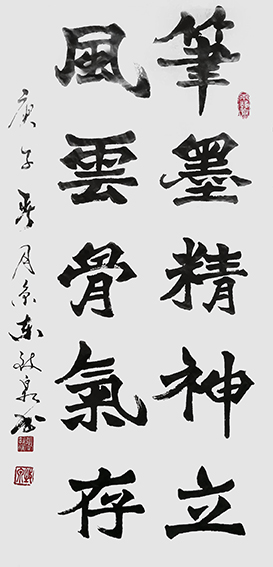 筆墨精神立
風雲骨氣存
庚子春月京東